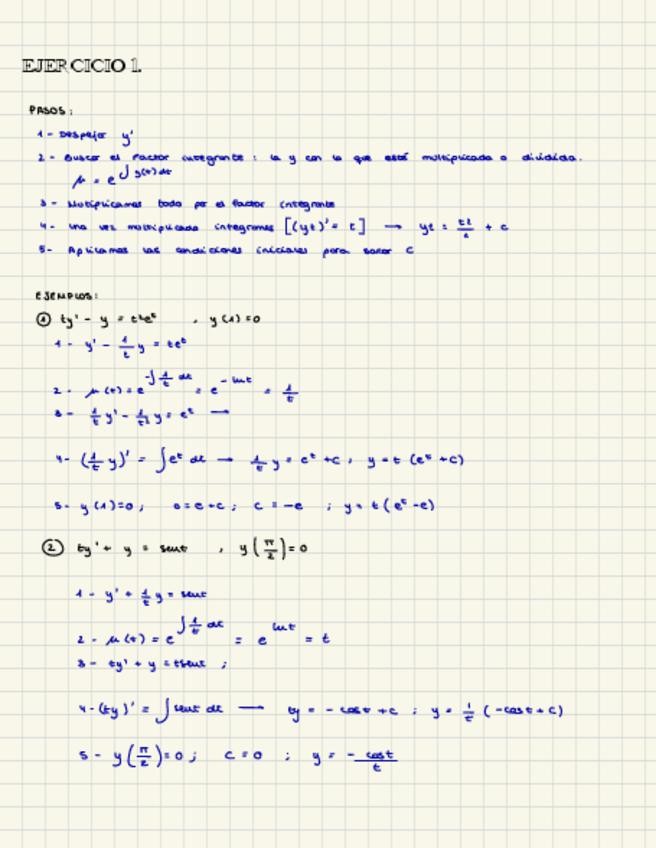 EJERCICIO 1.
PASOS:
1- Despejar y'
2- Buscar el factor integrante: la y con la que está multiplicada o dividida.
μ = e^∫g(t)dt
3- Multiplicamos todo por el factor integrante
4- una vez multiplicado integramos [(yt)' = t] → yt = t²/2 + c
5- Aplicamos las condiciones iniciales para sacar C
EJEMPLOS:
① ty' - y = t²e^t , y(1)=0
1- y' - 1/t y = te^t
2- μ(t) = e^-∫1/t dt = e^-lnt = 1/t
3- 1/t y' - 1/t² y = e^t →
4- (1/t y)' = ∫e^t dt → 1/t y = e^t + C ; y = t (e^t + C)
5- y(1)=0 ; 0=e+c ; C = -e ; y = t (e^t - e)
② ty' + y = sent , y(π/2)=0
1- y' + 1/t y = sent
2- μ(t) = e^∫1/t dt = e^lnt = t
3- ty' + y = tsent ;
4- (ty)' = ∫sent dt → ty = -cost + c ; y = 1/t (-cost + C)
5- y(π/2)=0 ; C=0 ; y = -cost/t